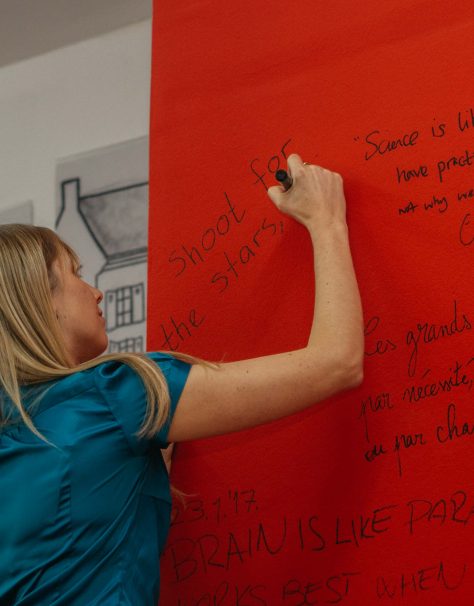 shoot for
the stars,
"Science is
have pract
not why wo
Les grands
par nécessité
ou par cha
23.1.'17.
BRAIN IS LIKE PARA
WORKS BEST WHEN